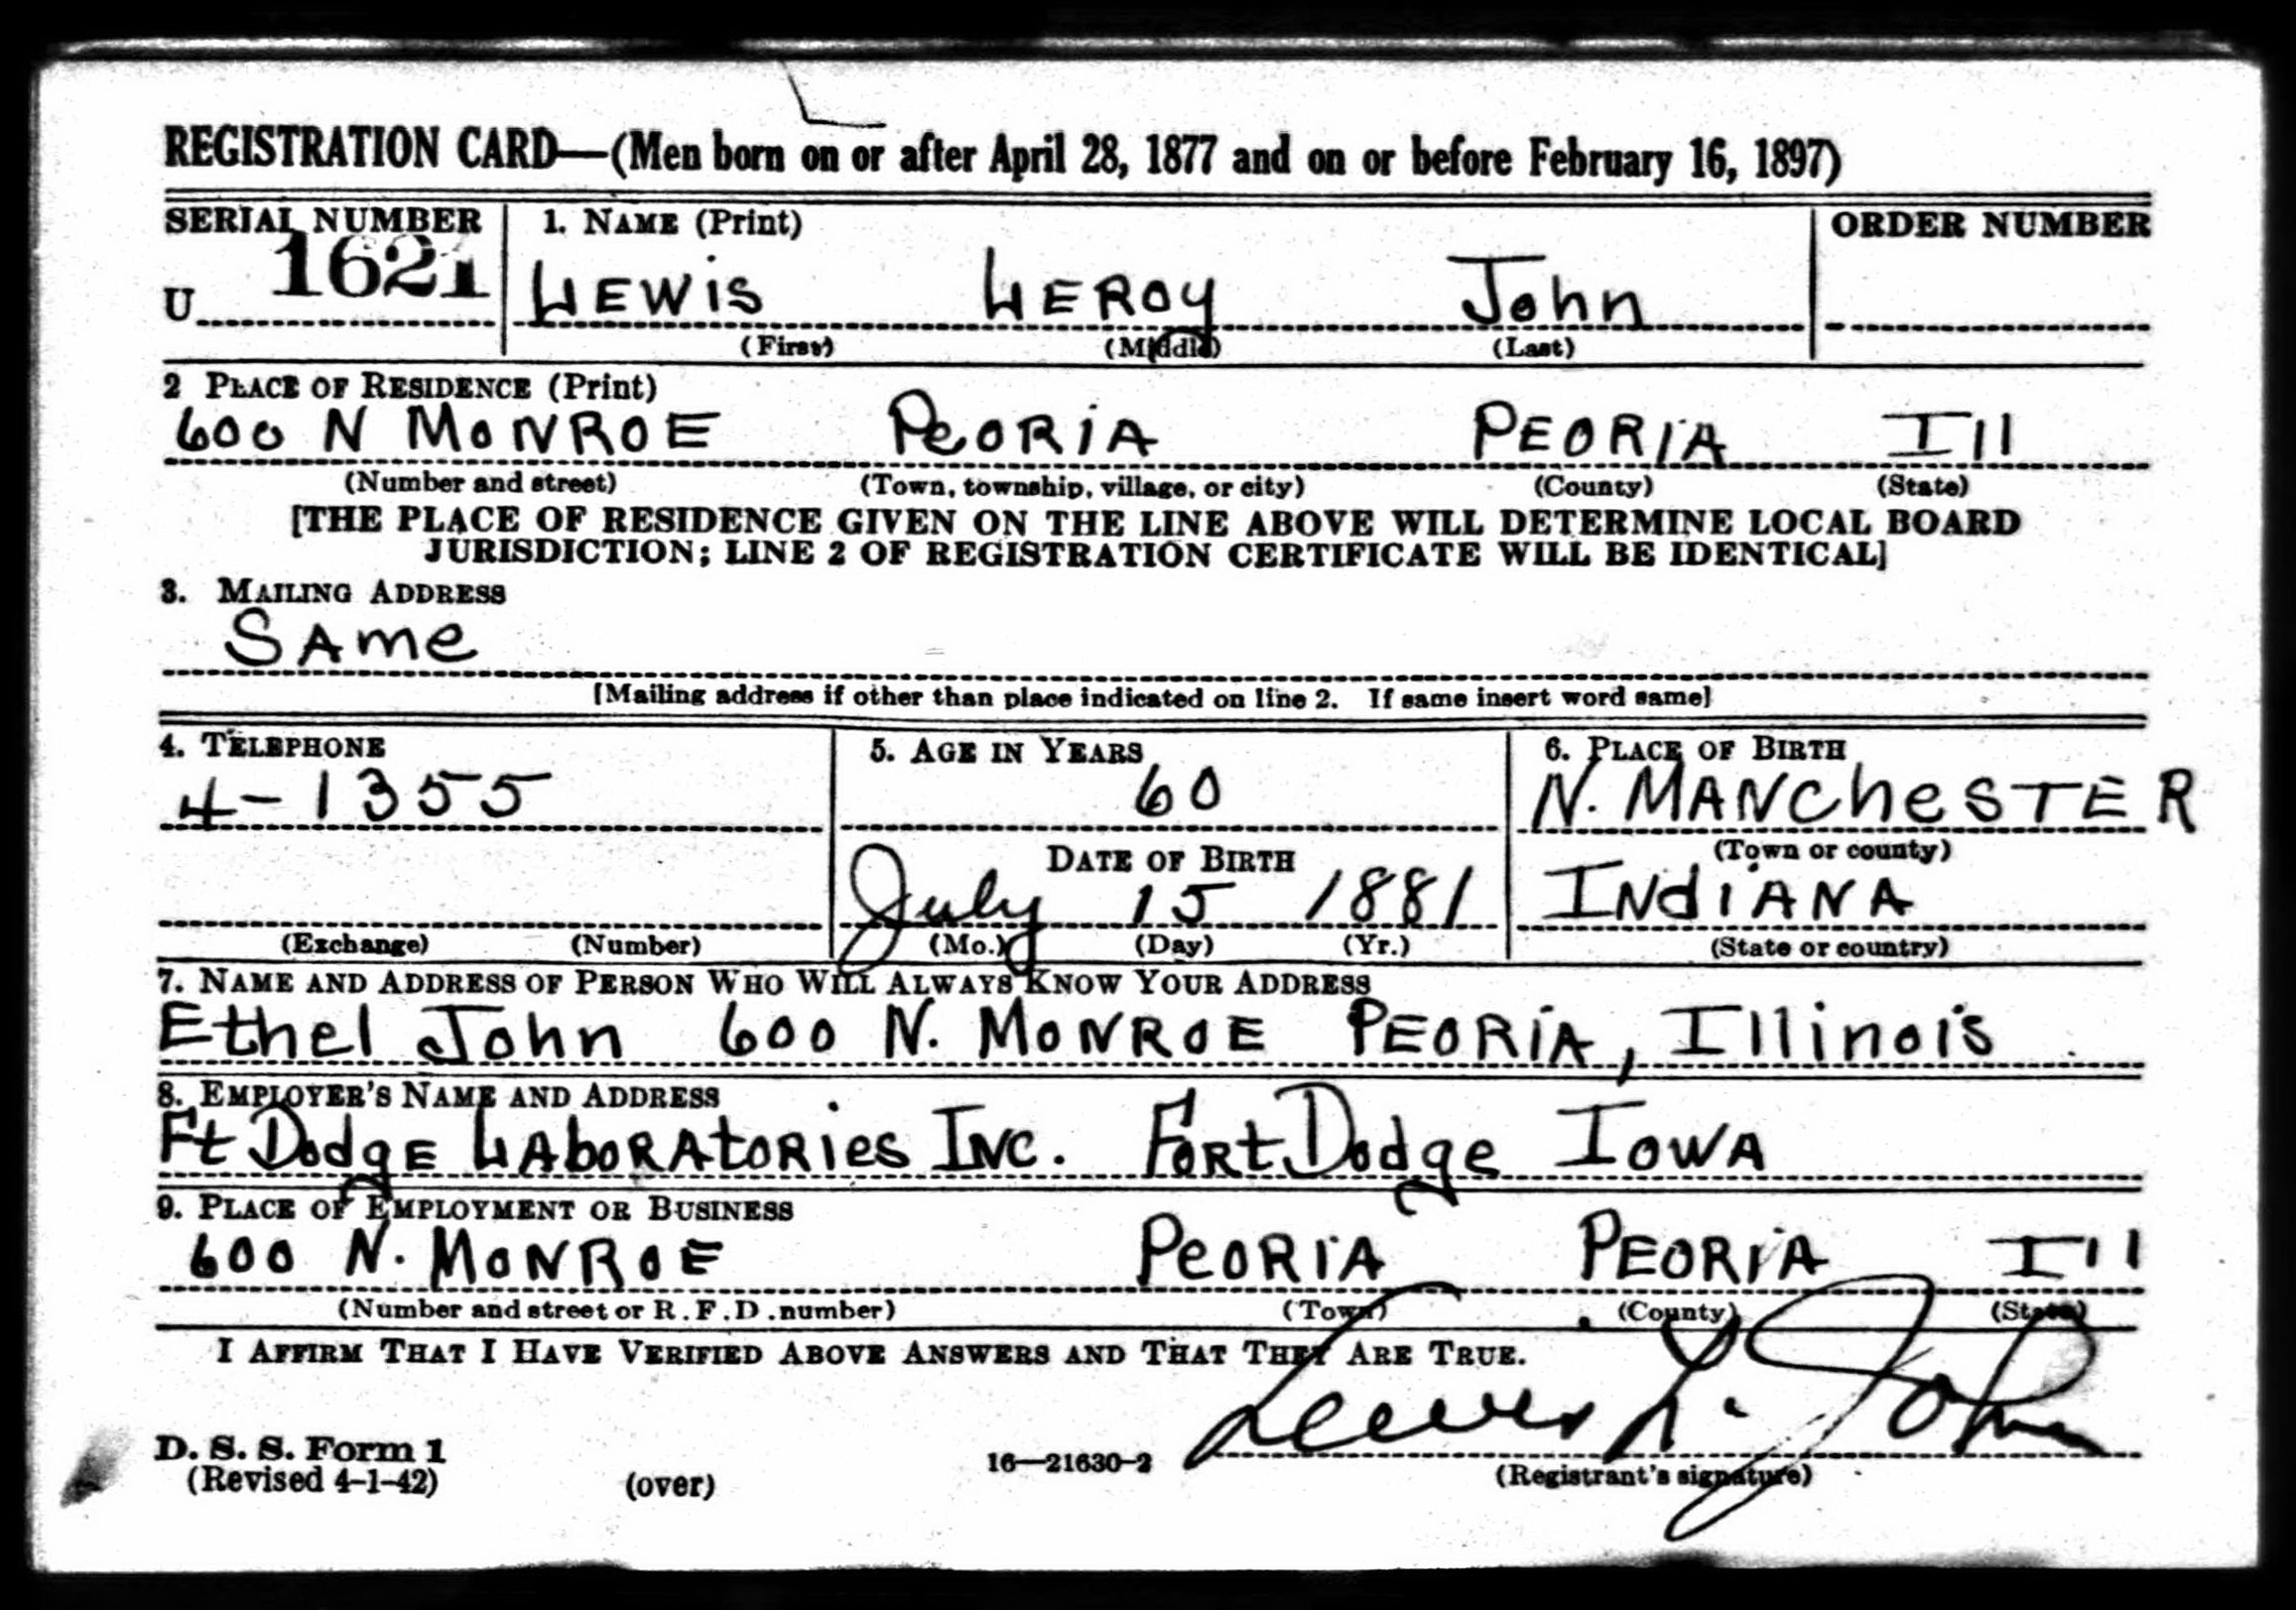 REGISTRATION CARD—(Men born on or after April 28, 1877 and on or before February 16, 1897)
SERIAL NUMBER 1. NAME (Print) ORDER NUMBER
U 1621 LEWiS LEROY John
(First) (Middle) (Last)
2 PLACE OF RESIDENCE (Print)
600 N MONROE PeORiA PEORIA Ill
(Number and street) (Town, township, village, or city) (County) (State)
[THE PLACE OF RESIDENCE GIVEN ON THE LINE ABOVE WILL DETERMINE LOCAL BOARD
JURISDICTION; LINE 2 OF REGISTRATION CERTIFICATE WILL BE IDENTICAL]
3. MAILING ADDRESS
SAme
[Mailing address if other than place indicated on line 2. If same insert word same]
4. TELEPHONE 5. AGE IN YEARS 6. PLACE OF BIRTH
4-1355 60 N. MANCheSTER
DATE OF BIRTH (Town or county)
July 15 1881 INdiANA
(Exchange) (Number) (Mo.) (Day) (Yr.) (State or country)
7. NAME AND ADDRESS OF PERSON WHO WILL ALWAYS KNOW YOUR ADDRESS
Ethel John 600 N. MONROE PEORiA, Illinois
8. EMPLOYER'S NAME AND ADDRESS
Ft DodgE LAboRAtoRies INC. FoRt Dodge IowA
9. PLACE OF EMPLOYMENT OR BUSINESS
600 N. MONROE PeORIA PEORiA Ill
(Number and street or R.F.D. number) (Town) (County) (State)
I AFFIRM THAT I HAVE VERIFIED ABOVE ANSWERS AND THAT THEY ARE TRUE.
Lewis L. John
D. S. S. Form 1
(Revised 4-1-42) (over) 16—21630-2 (Registrant's signature)